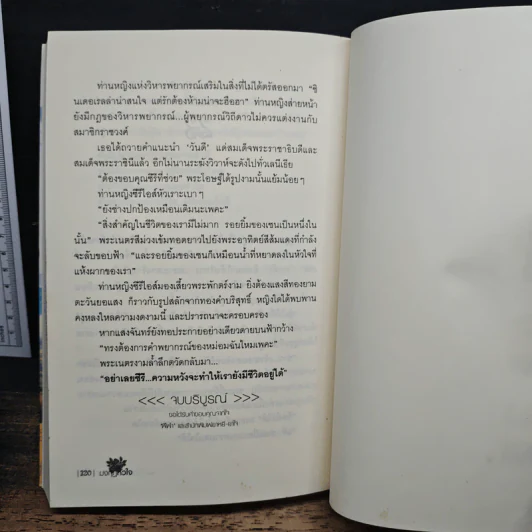 ท่านหญิงแห่งวิหารพยากรณ์เสริมในสิ่งที่ไม่ได้ตรัสออกมา “ซิ
นเดอเรลล่าน่าสนใจ แต่รักต้องห้ามน่าจะฮือฮา” ท่านหญิงส่ายหน้า
ยังมีกฎของวิหารพยากรณ์...ผู้พยากรณ์วิถีดาวไม่ควรแต่งงานกับ
สมาชิกราชวงศ์
เธอได้ถวายคำแนะนำ ‘วันดี’ แด่สมเด็จพระราชาธิบดีและ
สมเด็จพระราชินีแล้ว อีกไม่นานระฆังวิวาห์จะดังไปทั่วเลนีเธีย
“ต้องขอบคุณซีรีที่ช่วย” พระโอษฐ์ได้รูปงามนั้นแย้มน้อยๆ
ท่านหญิงซีรีไอส์หัวเราะเบาๆ
“ยังช่างปกป้องเหมือนเดิมนะเพคะ”
“สิ่งสำคัญในชีวิตของเรามีไม่มาก รอยยิ้มของเซนเป็นหนึ่งใน
นั้น” พระเนตรสีม่วงเข้มทอดยาวไปยังพระอาทิตย์สีส้มแดงที่กำลัง
จะลับขอบฟ้า “และรอยยิ้มของเซนก็เหมือนน้ำที่หยาดลงในหัวใจที่
แห้งผากของเรา”
ท่านหญิงซีรีไอส์มองเสี้ยวพระพักตร์งาม ยิ่งต้องแสงสีทองยาม
ตะวันยอแสง ก็ราวกับรูปสลักจากทองคำบริสุทธิ์ หญิงใดได้พบพาน
คงหลงใหลความงดงามนี้ และปรารถนาจะครอบครอง
หากแสงจันทร์ยังทอประกายอย่างเดียวดายบนฟ้ากว้าง
“ทรงต้องการคำพยากรณ์ของหม่อมฉันไหมเพคะ”
พระเนตรงามล้ำลึกตวัดกลับมา...
“อย่าเลยซีรี...ความหวังจะทำให้เรายังมีชีวิตอยู่ได้”
<<< จบบริบูรณ์ >>>
|230|